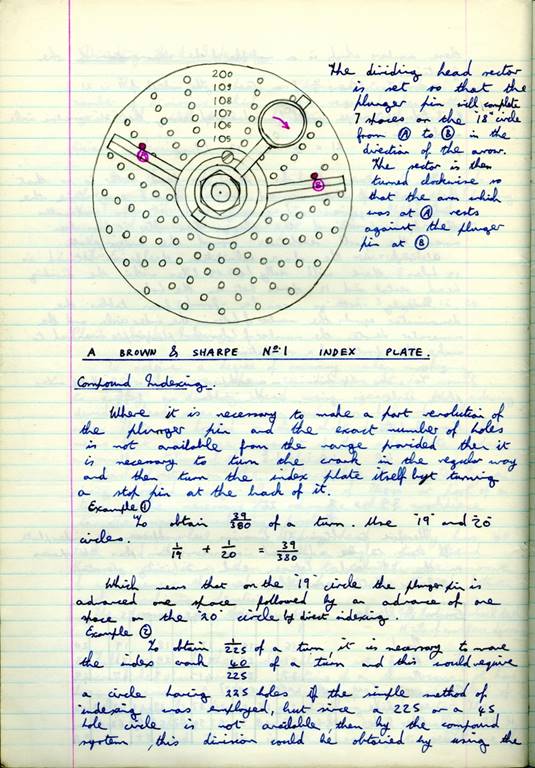 200
109
108
107
106
105
A
B
The dividing head sector
is set so that the
plunger pin will complete
7 spaces on the "18" circle
from Ⓐ to Ⓑ in the
direction of the arrow.
The sector is then
turned clockwise so
that the arm which
was at Ⓐ rests
against the plunger
pin at Ⓑ
A BROWN & SHARPE No.1 INDEX PLATE.
Compound Indexing.
Where it is necessary to make a part revolution of
the plunger pin and the exact number of holes
is not available from the range provided then it
is necessary to turn the crank in the regular way
and then turn the index plate itself by turning
a stop pin at the back of it.
Example ①
To obtain 39/380 of a turn. Use "19" and "20"
circles.
1/19 + 1/20 = 39/380
Which means that on the "19" circle the plunger pin is
advanced one space followed by an advance of one
space on the "20" circle by direct indexing.
Example ②
To obtain 1/225 of a turn, it is necessary to move
the index crank 40/225 of a turn and this would require
a circle having 225 holes if the simple method of
indexing was employed, but since a 225 or a 45
hole circle is not available, then by the compound
system, this division could be obtained by using the